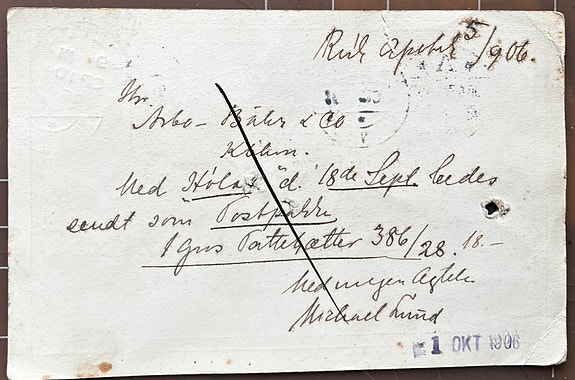 Rvík 5/9 06.
Hr.
Arbo-Bähr & Co
Kbhn.
Med Hólar d. 18de Sept. bedes
sendt som Postpakke
1 Gros Pattehætter 386/28. 18.-
Med megen Agtelse
Michael Lund
1 OKT 1906